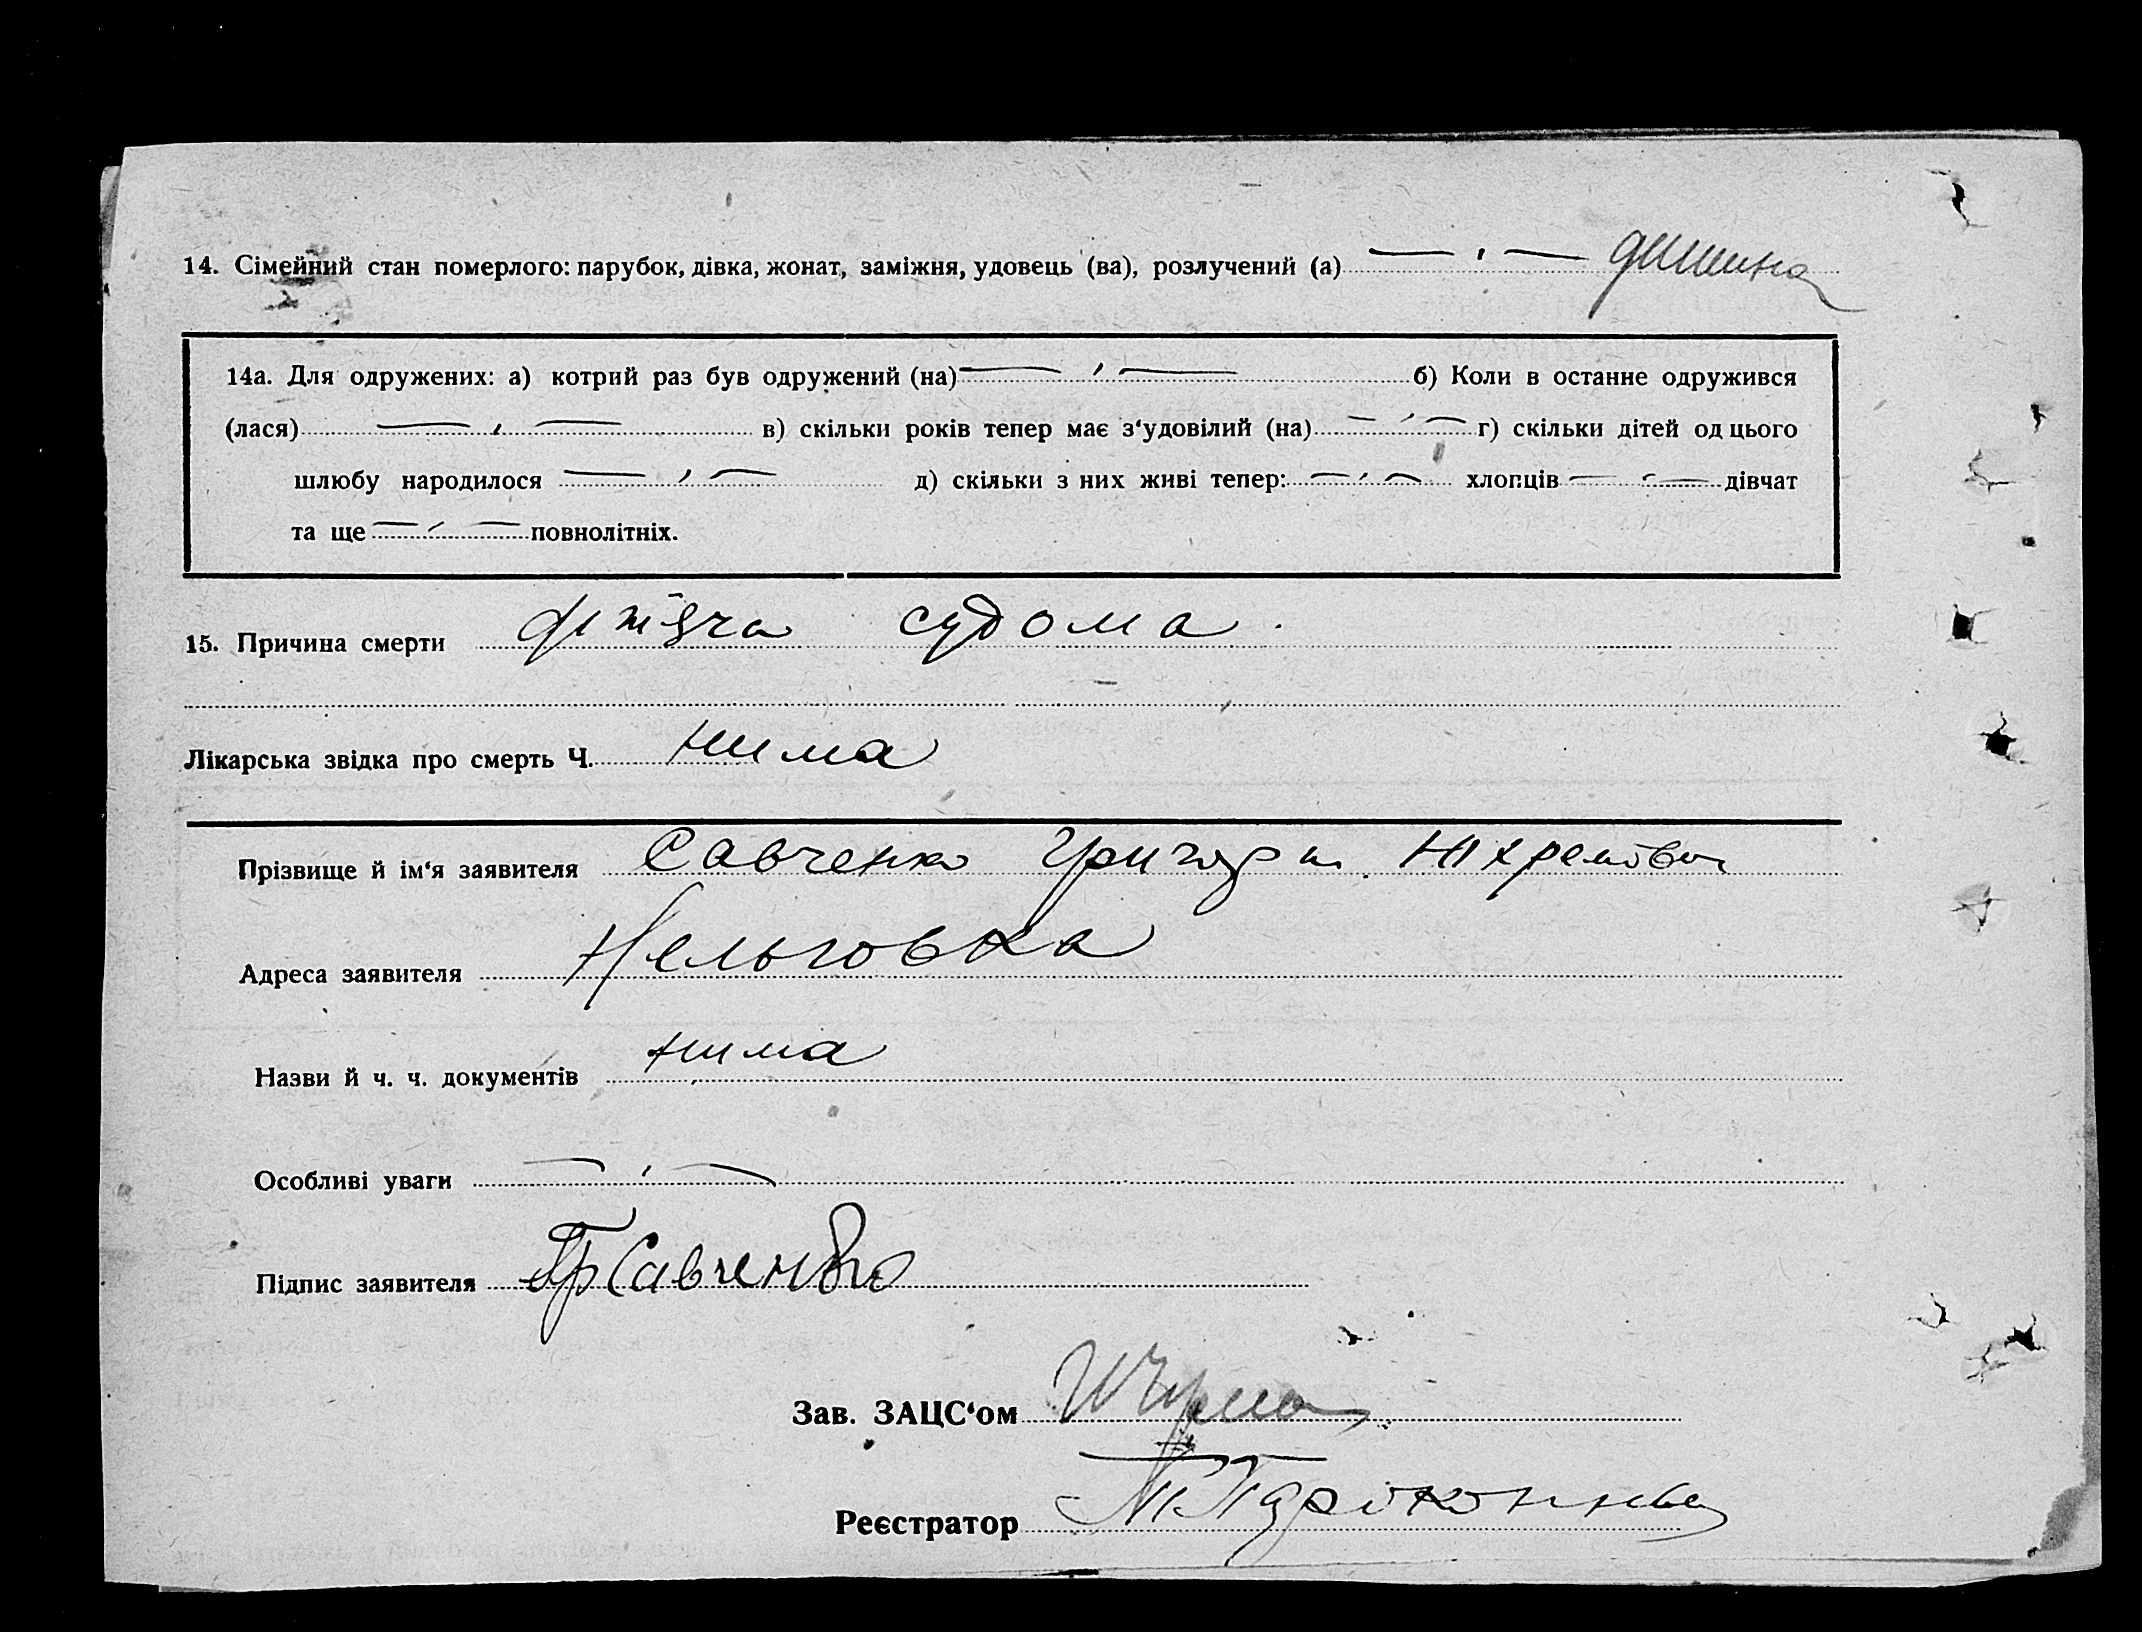 14. Сімейний стан померлого: парубок, дівка, жонат, заміжня, удовець (ва), розлучений (а) — ' — дитина
14а. Для одружених: а) котрий раз був одружений (на) — ' — б) Коли в останнє одружився
(лася) — ' — в) скільки років тепер має з‘удовілий (на) — ' — г) скільки дітей од цього
шлюбу народилося — ' — д) скільки з них живі тепер: — ' — хлопців — ' — дівчат
та ще — ' — повнолітніх.
15. Причина смерти дитяча судома.
Лікарська звідка про смерть Ч. нима
Прізвище й ім‘я заявителя Савченко Григорій
Адреса заявителя Нельговка
Назви й ч. ч. документів нима
Особливі уваги — ' —
Підпис заявителя Гр Савченко
Зав. ЗАЦС‘ом
Реєстратор